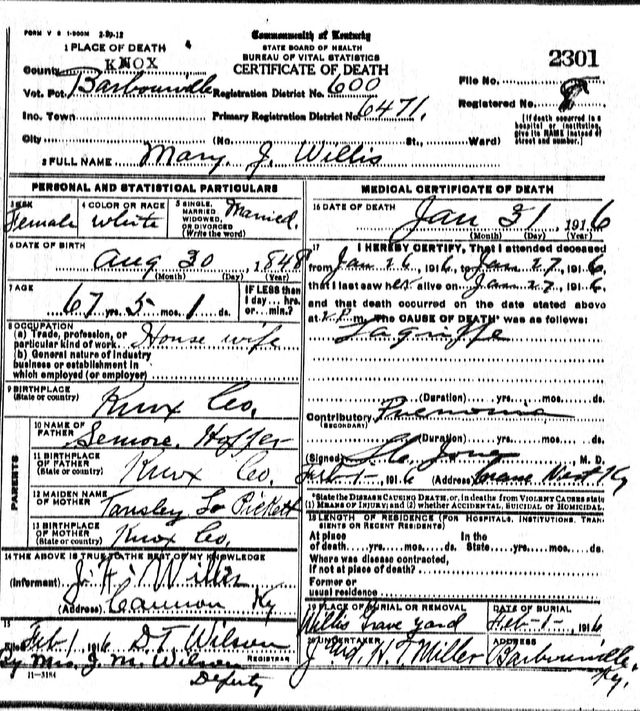 FORM V S 1-500M 2-29-12
Commonwealth of Kentucky
STATE BOARD OF HEALTH
BUREAU OF VITAL STATISTICS
CERTIFICATE OF DEATH
2301
1 PLACE OF DEATH
County KNOX
Vot. Pct. Barbourville
Registration District No. 600
File No.
Ino. Town
Primary Registration District No. 6471
Registered No. 8
City (No. St., Ward)
[If death occurred in a hospital or institution, give its NAME instead of street and number.]
2 FULL NAME Mary. J. Willis
PERSONAL AND STATISTICAL PARTICULARS
3 SEX Female
4 COLOR OR RACE white
5 SINGLE, MARRIED, WIDOWED, OR DIVORCED (Write the word) Married.
6 DATE OF BIRTH
Aug 30, 1848
(Month) (Day) (Year)
7 AGE
67 yrs. 5 mos. 1 ds.
IF LESS than 1 day... hrs. or... min.?
8 OCCUPATION
(a) Trade, profession, or particular kind of work House wife
(b) General nature of industry business or establishment in which employed (or employer)
9 BIRTHPLACE (State or country) Knox Co,
PARENTS
10 NAME OF FATHER Semore. Hoffer
11 BIRTHPLACE OF FATHER (State or country) Knox Co.
12 MAIDEN NAME OF MOTHER Tansley Pickett
13 BIRTHPLACE OF MOTHER (State or country) Knox Co.
14 THE ABOVE IS TRUE TO THE BEST OF MY KNOWLEDGE
(Informant) Willis
(Address) Cannon Ky
15
Filed Feb 1 1916 D.T. Wilson
REGISTRAR
By Mrs. J. M. Wilson
Deputy
11-3184
MEDICAL CERTIFICATE OF DEATH
16 DATE OF DEATH
Jan 31, 1916
(Month) (Day) (Year)
17 I HEREBY CERTIFY, That I attended deceased
from Jan 26, 1916, to Jan 27, 1916,
that I last saw her alive on Jan 27, 1916,
and that death occurred on the date stated above
at P m. The CAUSE OF DEATH* was as follows:
Lagriffe
(Duration) yrs. mos. ds.
Contributory Pnemonia
(SECONDARY)
(Duration) yrs. mos. ds.
(Signed) Jones M. D.
Feb-1- 1916 (Address) Ky
*State the DISEASE CAUSING DEATH, or, in deaths from VIOLENT CAUSES state (1) MEANS OF INJURY; and (2) whether ACCIDENTAL, SUICIDAL OR HOMICIDAL.
18 LENGTH OF RESIDENCE (FOR HOSPITALS, INSTITUTIONS, TRANSIENTS OR RECENT RESIDENTS)
At place of death yrs. mos. ds. In the State yrs. mos. ds.
Where was disease contracted, if not at place of death?
Former or usual residence
19 PLACE OF BURIAL OR REMOVAL
Willis Grave yard
DATE OF BURIAL
Feb-1-, 1916
20 UNDERTAKER
H.T. Miller
ADDRESS
Barbourville, Ky.